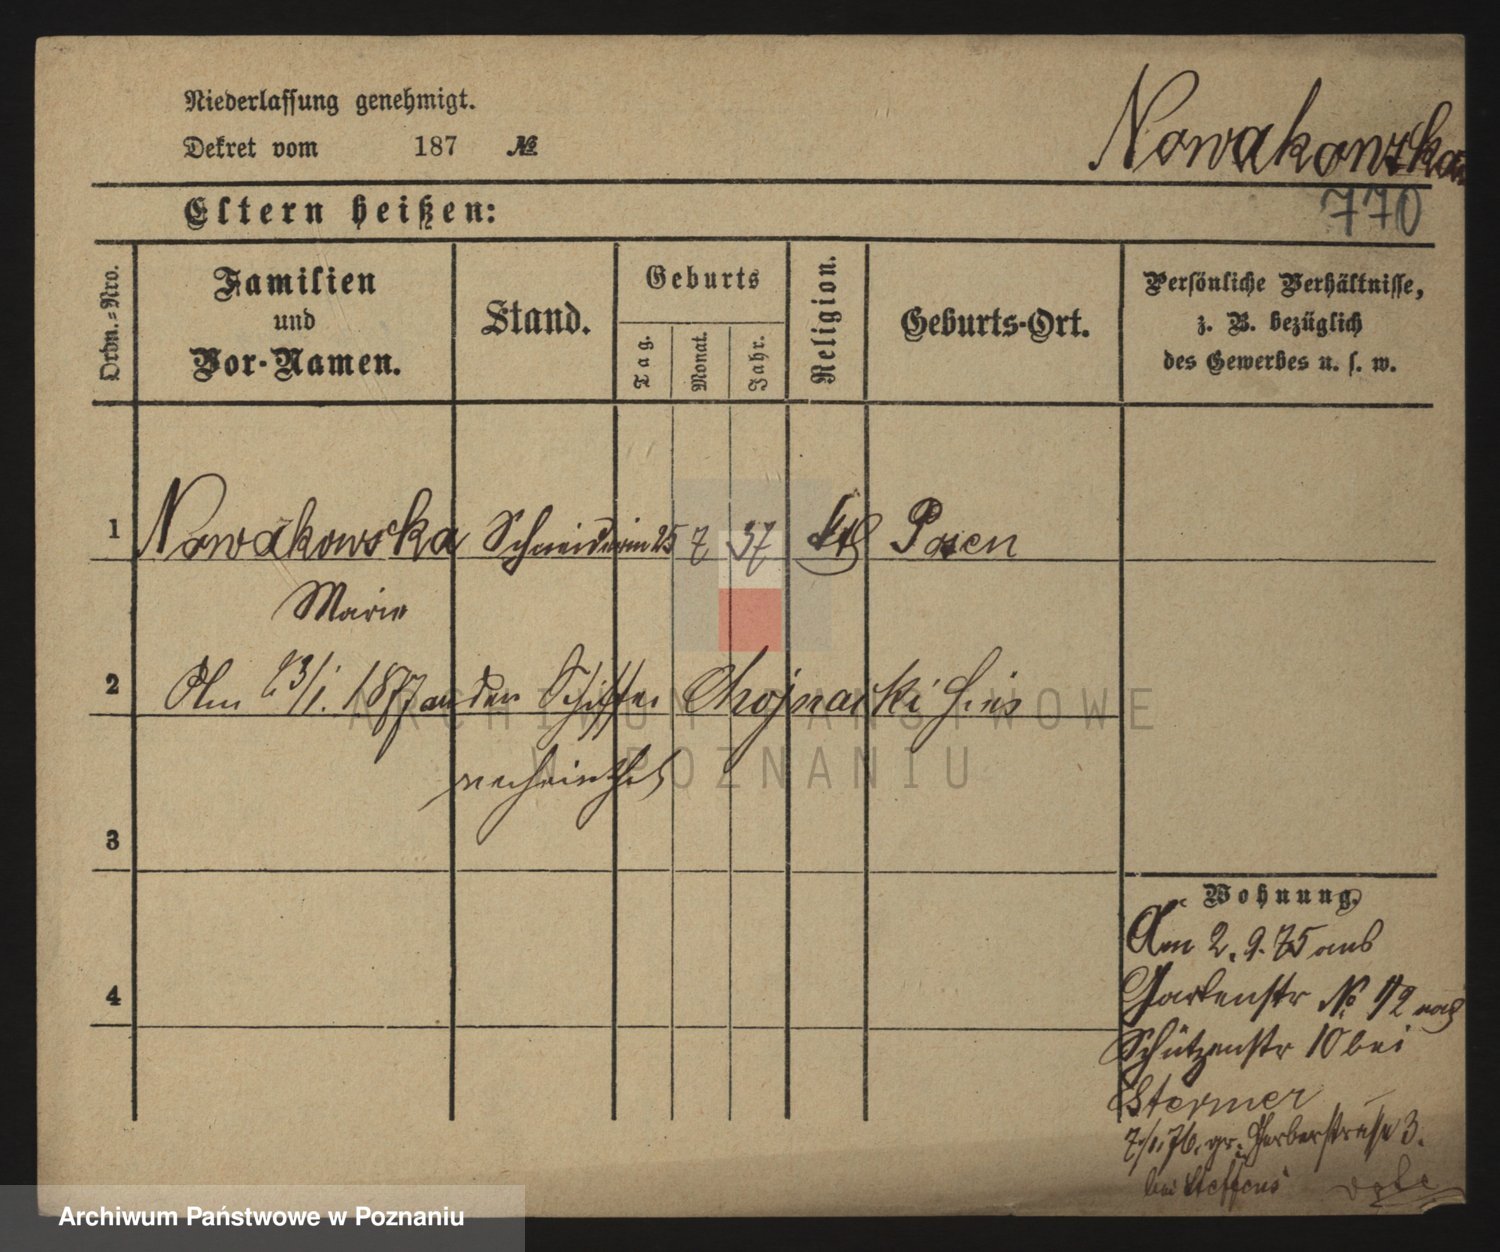 Niederlassung genehmigt.
Dekret vom 187 №
Nowakowska
770
Eltern heißen:
Ordn.=Nro.
Familien
und
Vor-Namen.
Stand.
Geburts
Tag.
Monat.
Jahr.
Religion.
Geburts-Ort.
Persönliche Verhältnisse,
z. B. bezüglich
des Gewerbes u. s. w.
1 Nowakowska Schneiderin 25 7 37 kth Posen
Marie
2 Am 23/1. 1877 an den Schiffer Chojnacki hier
verheirathet
3
4
Wohnung.
Am 2. 9. 75 aus
Gartenstr № 12 nach
Schützenstr 10 bei
Stermer
7/1. 76. gr. Gerberstraße 3.
bei Steffens
ARCHIWUM PAŃSTWOWE
W POZNANIU
Archiwum Państwowe w Poznaniu